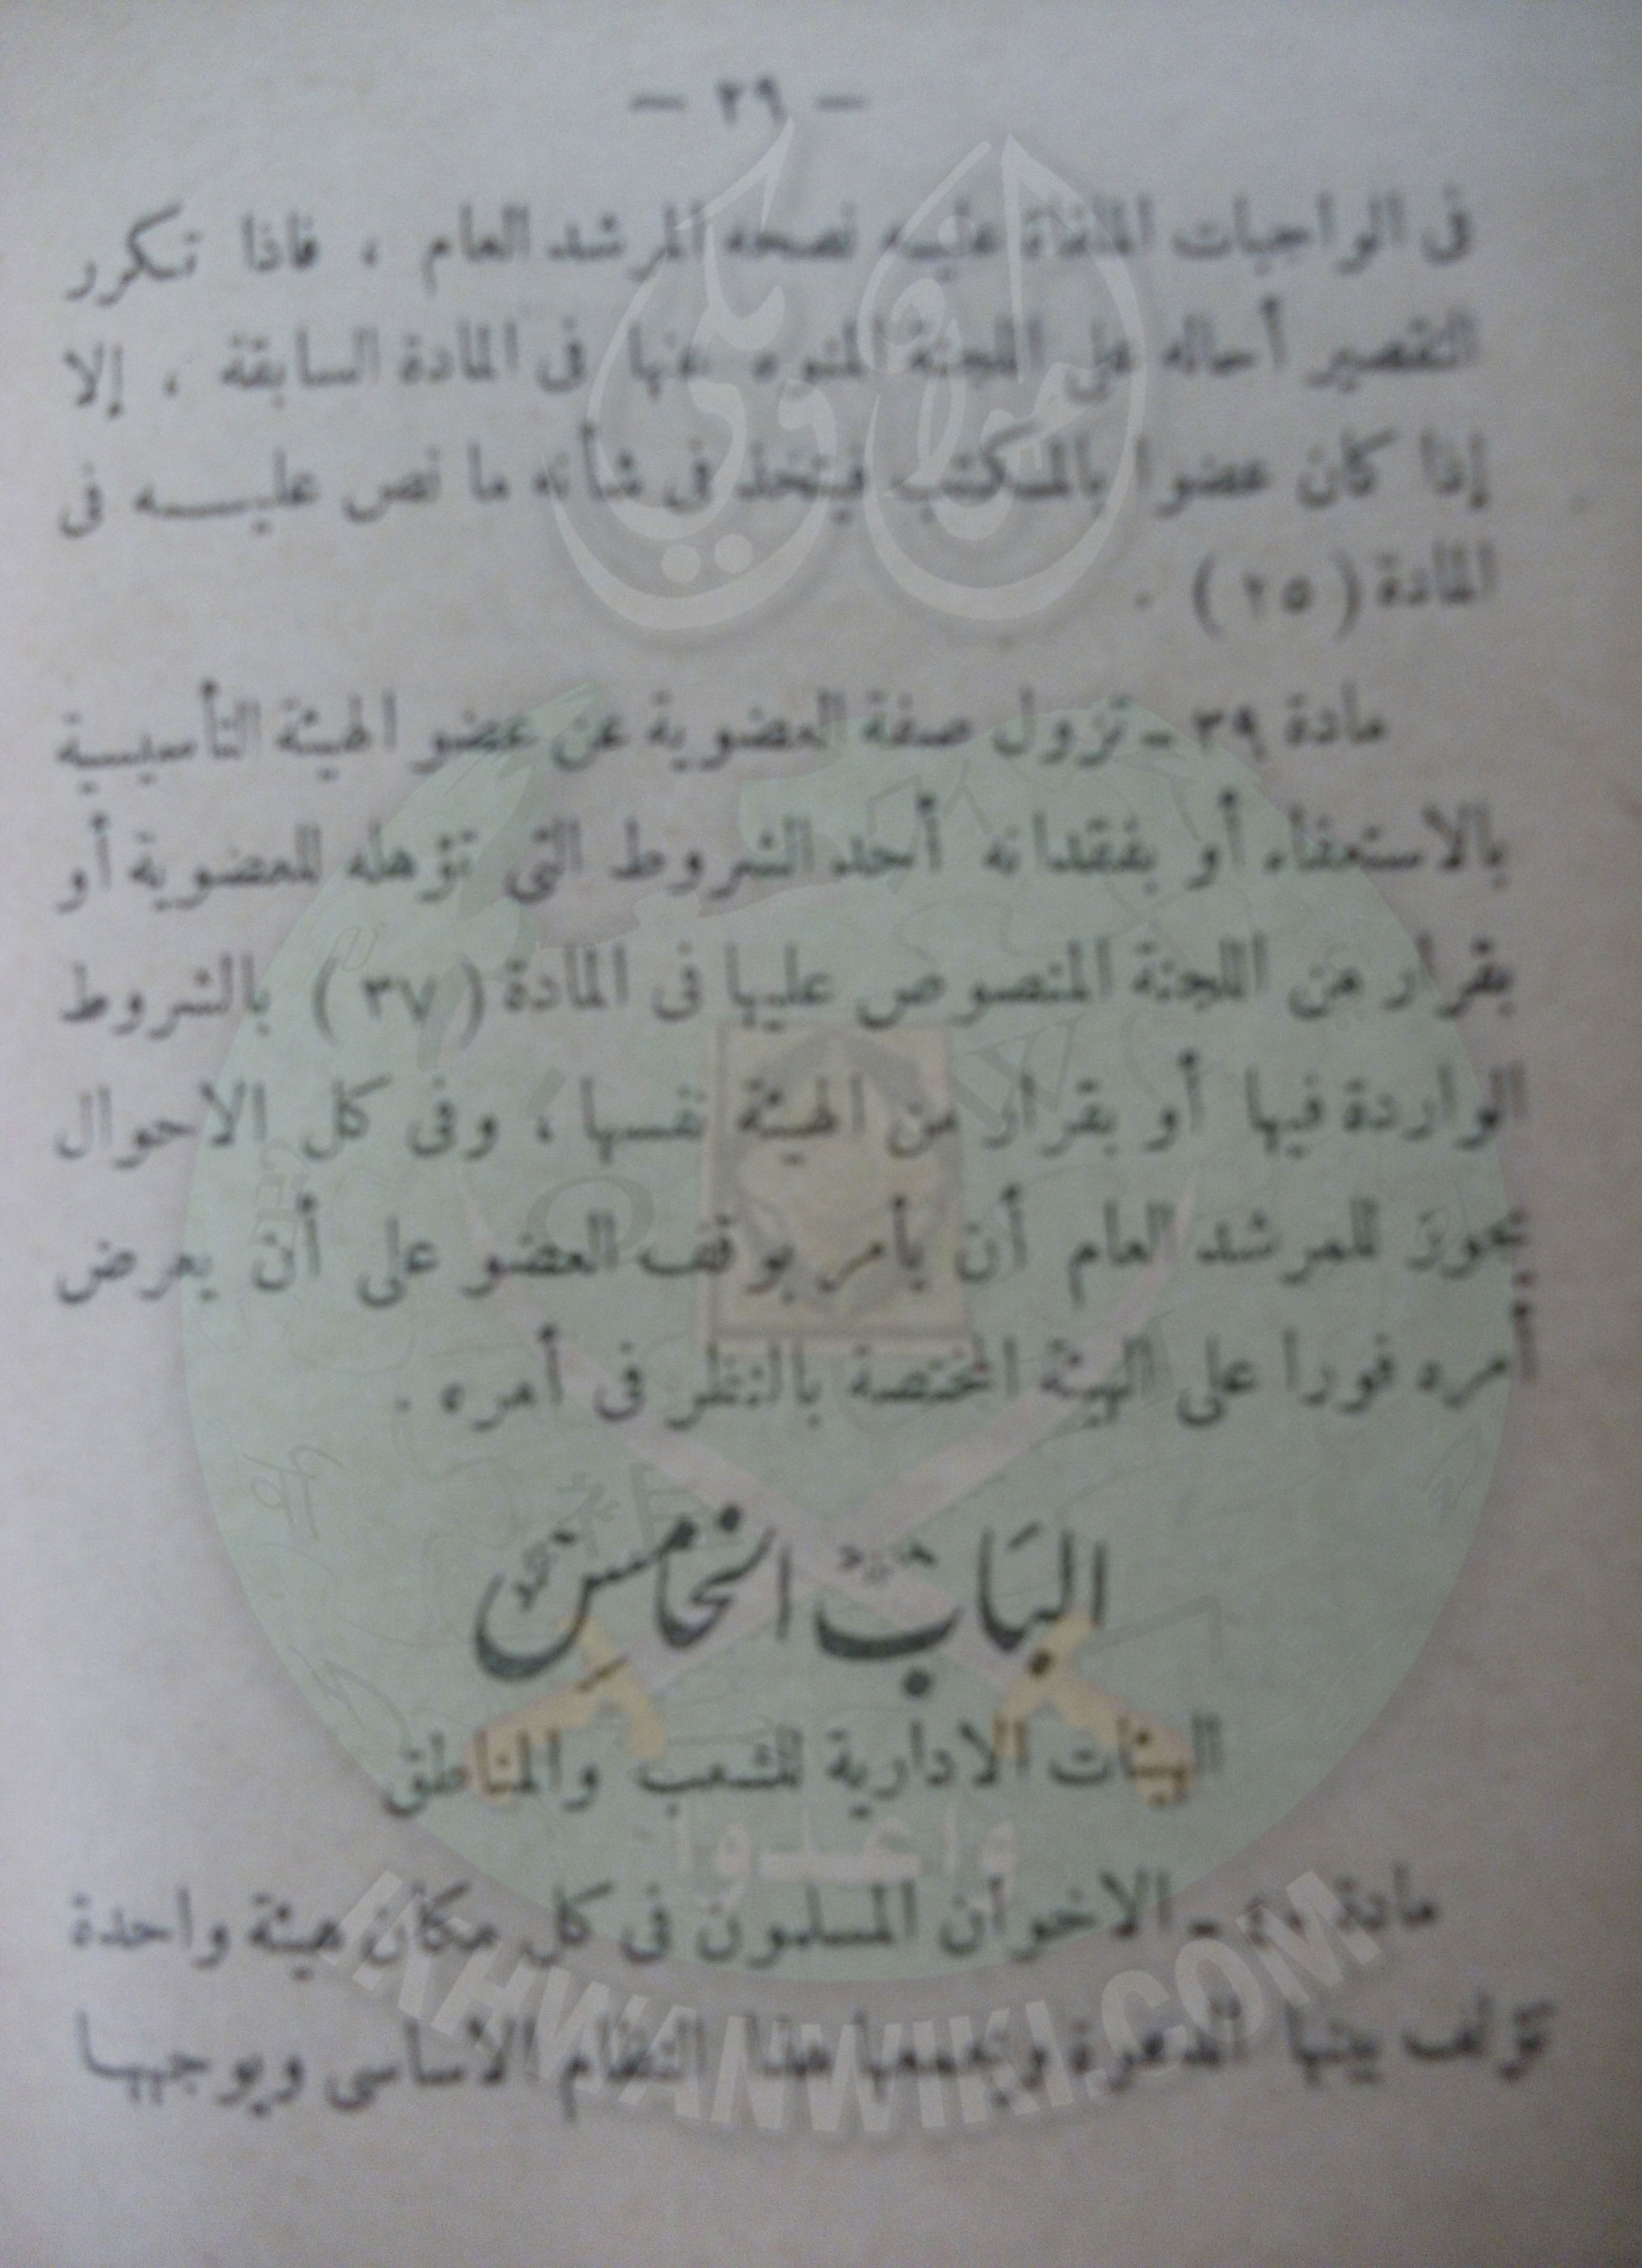 — ٢٩ —
فى الواجبات الملقاة عليه نصحه المرشد العام ، فاذا تكرر
التقصير أحاله على اللجنة المنوه عنها فى المادة السابقة ، إلا
إذا كان عضوا بالمكتب فيتخذ فى شأنه ما نص عليه فى
المادة ( ٢٥ ) .
مادة ٣٩ - تزول صفة العضوية عن عضو الهيئة التأسيسية
بالاستعفاء أو بفقدانه أحد الشروط التى تؤهله للعضوية أو
بقرار من اللجنة المنصوص عليها فى المادة ( ٣٧ ) بالشروط
الواردة فيها أو بقرار من الهيئة نفسها ، وفى كل الاحوال
يجوز للمرشد العام أن يأمر بوقف العضو على أن يعرض
أمره فورا على الهيئة المختصة بالنظر فى أمره .
الباب الخامس
الهيئات الادارية للشعب والمناطق
مادة ٤٠ - الاخوان المسلمون فى كل مكان هيئة واحدة
تؤلف بينها الدعوة ويجمعها هذا النظام الاساسى ويوجهها
إخوان ويكي
وأعدوا
IKHWANWIKI.COM